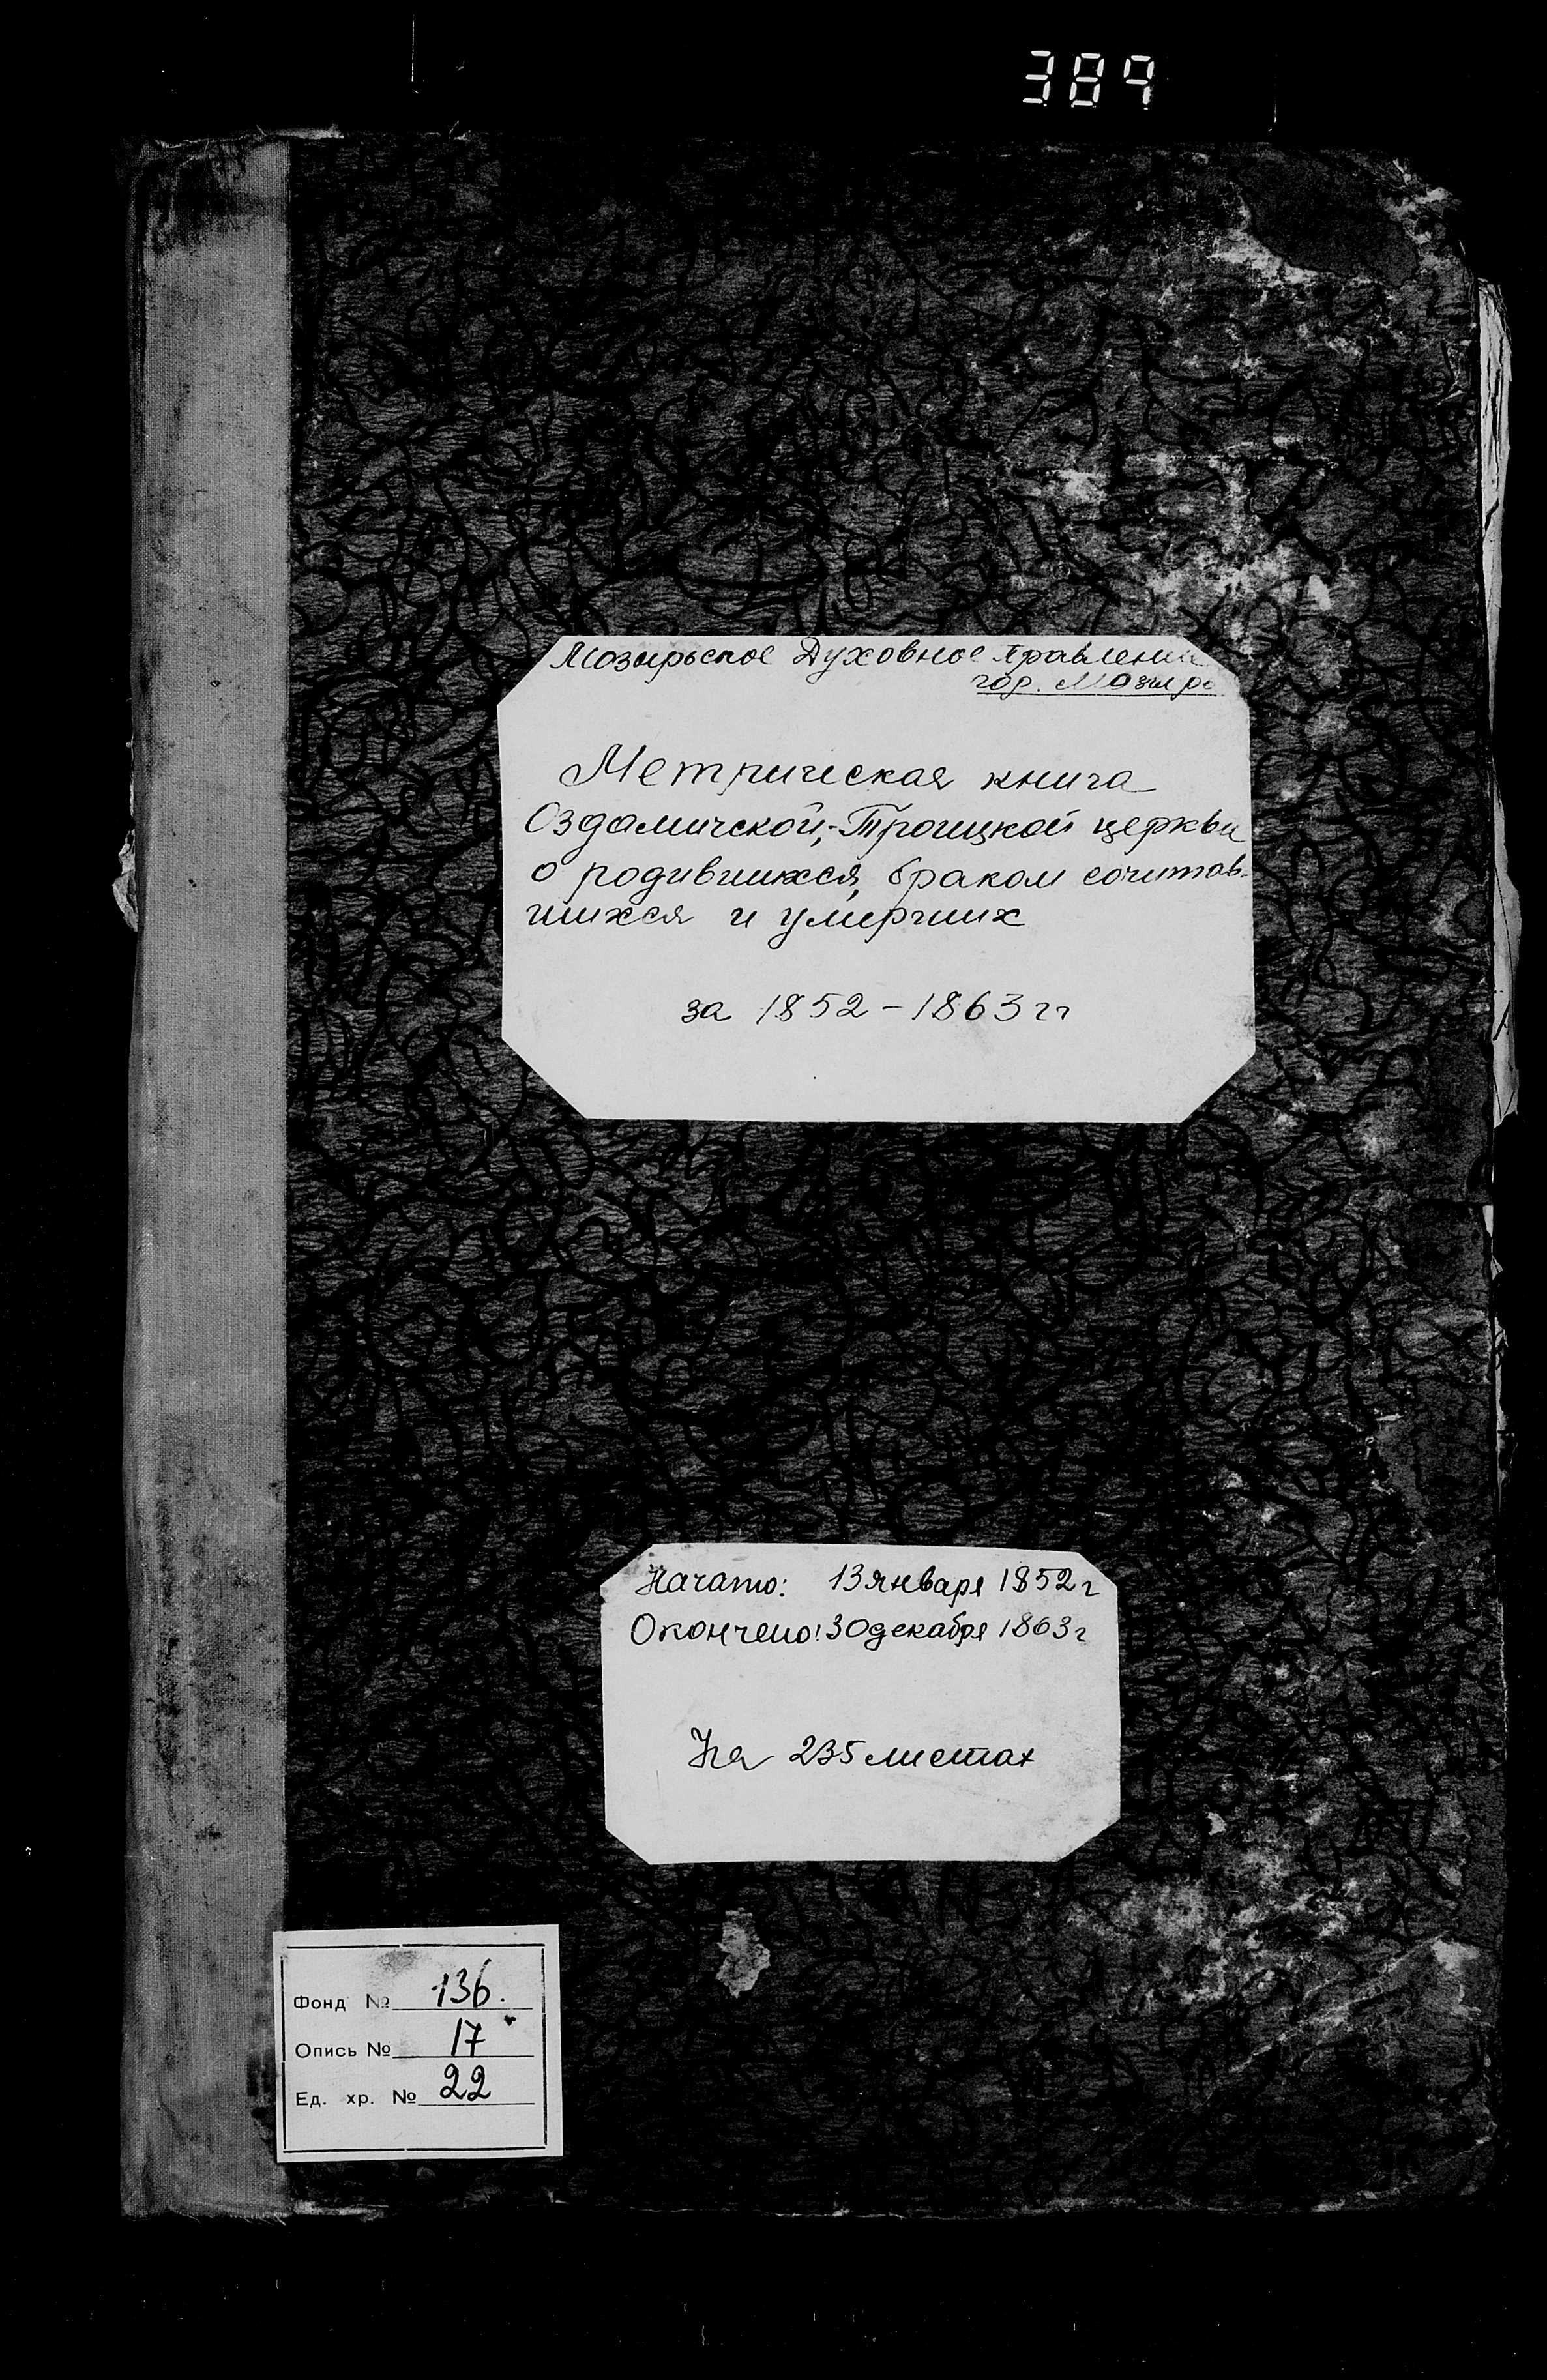 389
Мозырьское Духовное Правление
гор. Мозырь
Метрическая книга
Оздамичской, Троицкой церкви
о родившихся, браком сочитав-
шихся и умерших
за 1852-1863 гг
Начато: 13 января 1852 г
Окончено: 30 декабря 1863 г
На 235 листах
Фонд № 136.
Опись № 17
Ед. хр. № 22